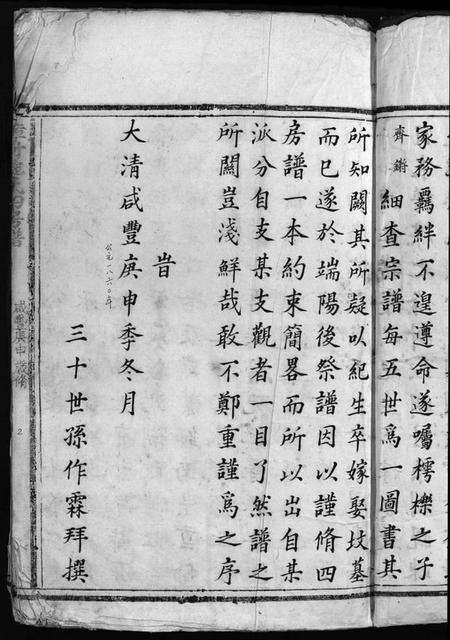 家務羈絆不遑遵命遂囑樗櫟之子
齊鏘細查宗譜每五世爲一圖書其
所知闕其所疑以紀生卒嫁娶坟墓
而已遂於端陽後祭譜因以謹脩四
房譜一本約束簡畧而所以出自某
派分自支某支觀者一目了然譜之
所關豈淺鮮哉敢不鄭重謹爲之序
旹
大清咸豐庚申季冬月
公元一八六〇年
三十世孫作霖拜撰
咸豐庚申 歲修
2